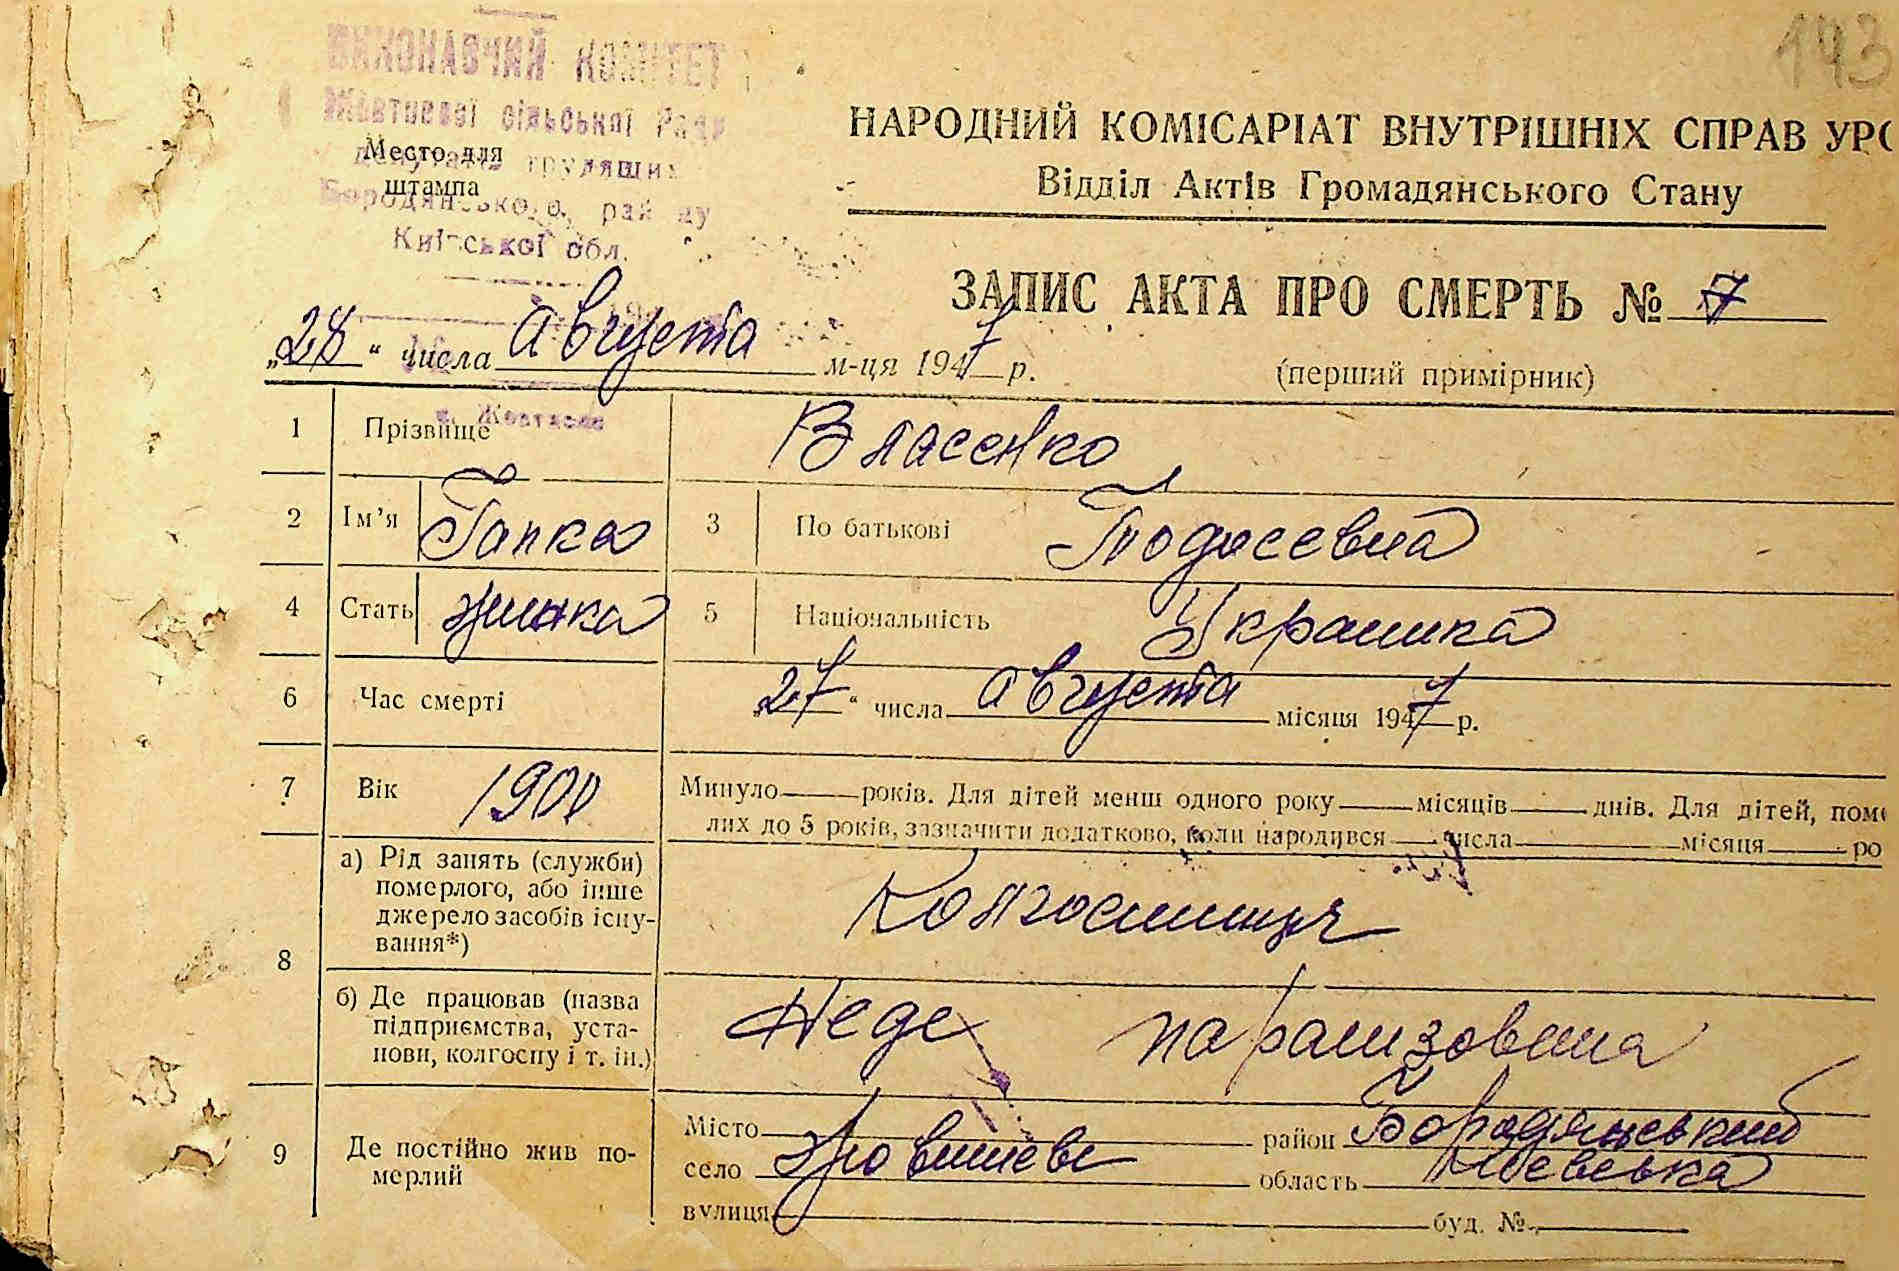 143
ВИКОНАВЧИЙ КОМІТЕТ
Жовтневої сільської Ради
депутатів трудящих
Бородянського району
Київської обл.
Место для
штампа
НАРОДНИЙ КОМІСАРІАТ ВНУТРІШНІХ СПРАВ УРС
Відділ Актів Громадянського Стану
ЗАПИС АКТА ПРО СМЕРТЬ № 7
„28“ числа Августа м-ця 1947 р.
(перший примірник)
1 Прізвище Власенко
2 Ім’я Гапка 3 По батькові Тодосевна
4 Стать жинка 5 Національність Украинка
6 Час смерті „27“ числа Августа місяця 1947 р.
7 Вік 1900 Минуло років. Для дітей менш одного року місяців днів. Для дітей, поме
лих до 5 років, зазначити додатково, коли народився числа місяця ро
8 а) Рід занять (служби)
померлого, або інше
джерело засобів існу-
вання*)
Колгоспниця
б) Де працював (назва
підприємства, уста-
нови, колгоспу і т. ін.)
Неде парализовина
9 Де постійно жив по-
мерлий
Місто район Бородянський
село область Киевська
вулиця буд. №